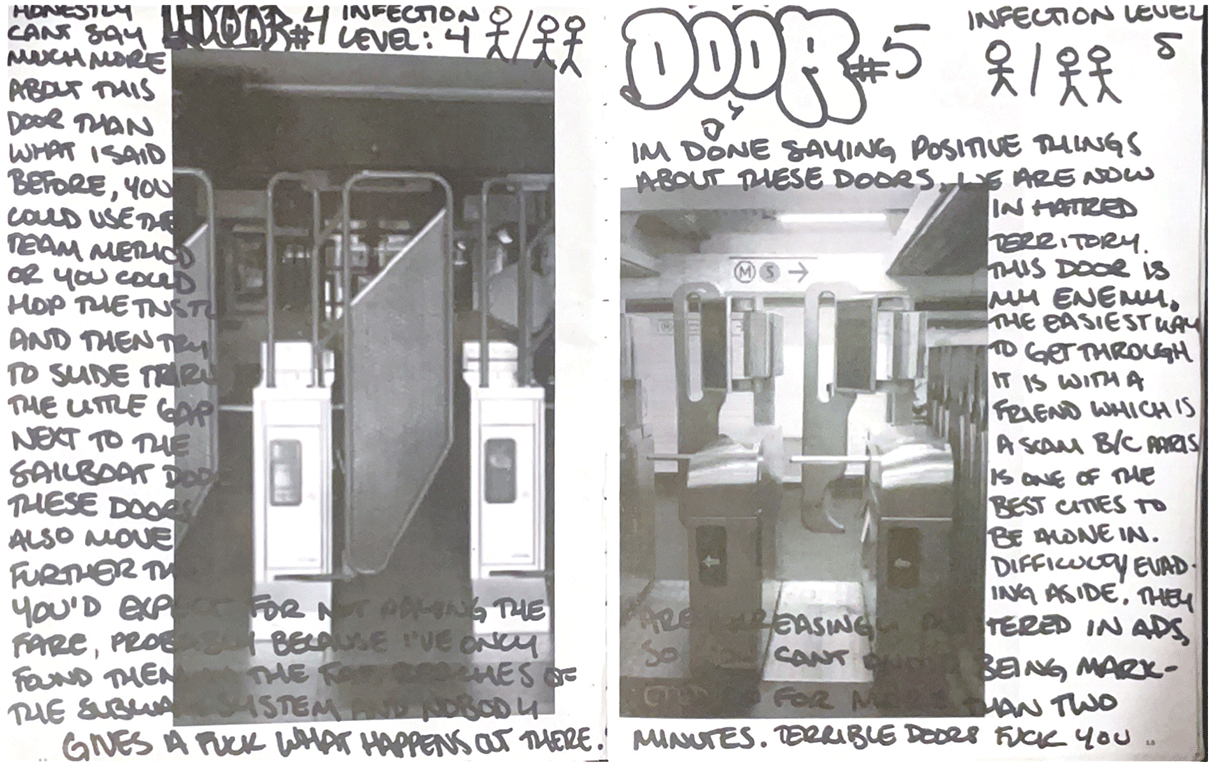 DOOR #4
INFECTION
LEVEL: 4
HONESTLY
CANT SAY
MUCH MORE
ABOUT THIS
DOOR THAN
WHAT I SAID
BEFORE, YOU
COULD USE THE
TEAM METHOD
OR YOU COULD
HOP THE
AND THEN TRY
TO SLIDE THRU
THE LITTLE GAP
NEXT TO THE
SAILBOAT
THESE DOORS
ALSO MOVE
FURTHER
YOU'D EXPECT FOR NOT PAYING THE
FARE, PROBABLY BECAUSE I'VE ONLY
FOUND THEM IN THE FAR REACHES OF
THE SUBWAY SYSTEM AND NOBODY
GIVES A FUCK WHAT HAPPENS OUT THERE.
DOOR #5
INFECTION LEVEL
5
IM DONE SAYING POSITIVE THINGS
ABOUT THESE DOORS. WE ARE NOW
IN HATRED
TERRITORY.
THIS DOOR IS
MY ENEMY.
THE EASIEST WAY
TO GET THROUGH
IT IS WITH A
FRIEND WHICH IS
A SCAM B/C PARIS
IS ONE OF THE
BEST CITIES TO
BE ALONE IN.
DIFFICULTY EVAD-
ING ASIDE. THEY
ARE INCREASINGLY PLASTERED IN ADS,
SO YOU CANT AVOID BEING MARK-
FOR MORE THAN TWO
MINUTES. TERRIBLE DOORS FUCK YOU
M S →